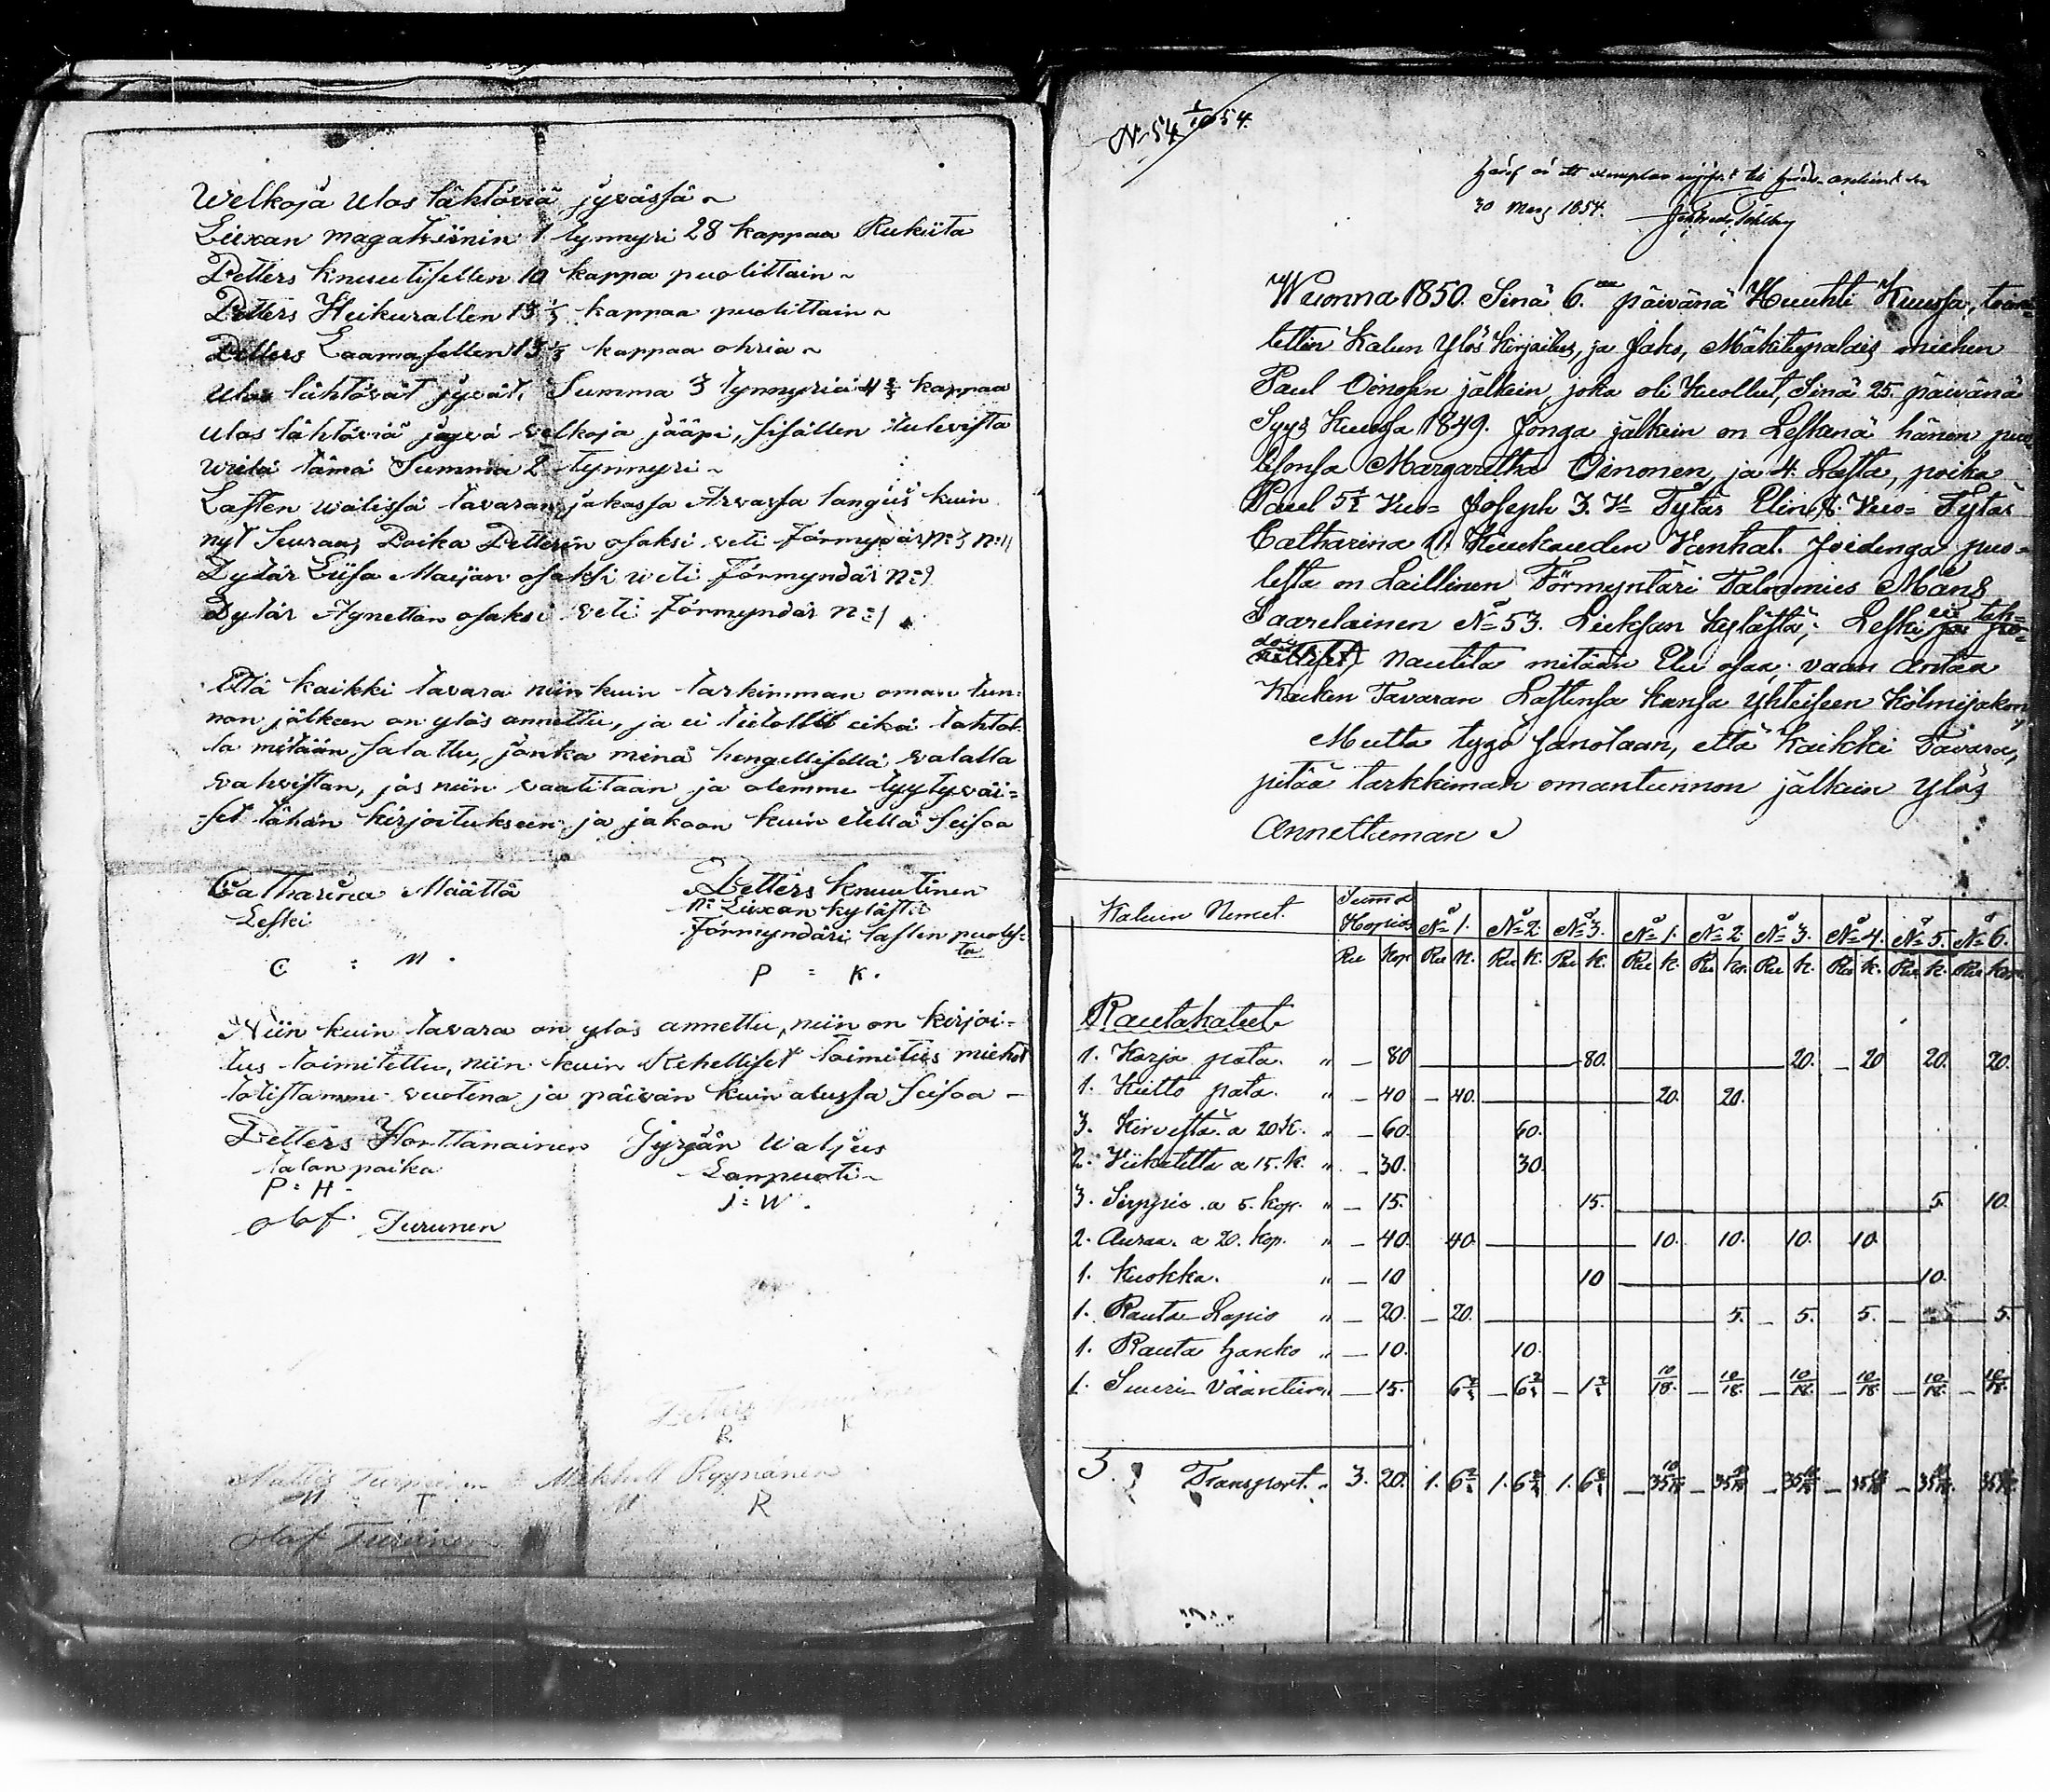 Welkoja Ulos lähtöviä jyvässä ~
Liexan magatsiinin 1 tynnyri 28 kappaa Rukiita
Petters Knuutisellen 10 kappa puolittain ~
Petters Heikurallen 13 1/3 kappaa puolittain ~
Petters Laamasellen 13 1/3 kappaa ohria ~
Ulos lähtövät jyvät, Summa 3 tynnyriä 4 2/3 kappaa
Ulos lähtöviä jyvä velkoja jääpi, sisällen tulevista
weilä tämä Summa 2 tynnyri ~
Lasten wälissä tavaran jakossa Arvassa langeis kuin
nyt Seuraa, Poika Petterin osaksi veti Förmyndär N:3 N:11
Tytär Liisa Maijan osaksi weti Förmyndär N:2
Tytär Agnettan osaksi veti Förmyndär N:1
Että kaikki tavara niin kuin tarkimman oman tun-
non jälkeen on ylös annettu, ja ei tietollu eikä tahtol-
la mitään salattu, jonka minä hengellisellä valalla
vahvistan, jos niin vaatitaan ja olemme tyytyväi-
set tähän kirjoitukseen ja jakoon kuin edellä seisoo
Catharina Määttä
Leski
C : M .
Petters Knuutinen
N: Liexan kylästä
Förmyndäri lasten puoles-
ta
P = K.
Niin kuin tavara on ylös annettu, niin on kirjoi-
tus toimitettu, niin kuin Rehelliset toimitus miehet
todistamme vuotena ja päivän kuin alussa seisoo -
Petters Horttanainen
talon poika
P = H -
Jyrjän Waljus
Lanpuoti ~
J = W .
Olof Turunen
Petters
P K
Mattis Turpeinen Mikkell Ryynänen
M T M R
Olof Turunen
N 54 1/10 54.
30 Marz 1854.
Wuonna 1850. Sinä 6. päivänä Huuhti Kuussa, toimi-
tettin Kalun Ylös Kirjoitus, ja Jako, Mäkitupalais miehen
Paul Oinosen jälkein, joka oli Kuollut, Sinä 25. päivänä
Syys Kuussa 1849. Jonga jälkein on Leskenä hänen puo-
lisonsa Margaretha Oinonen, ja 4. Lasta, poika
Paul 5 1/2 Vuo= Joseph 3. V= Tytär Elin, 8. Vuo= Tytär
Catharina 11. Kuukauden Vanhat. Joidenga puo-
lesta on Laillinen Förmyntäri Talonmies Måns
Saarelainen N=53. Lieksan Kylästä; Leski ei tah-
do nautita mitään Etu osaa; vaan Antaa
Kaiken Tavaran Lastensa kansa Yhteiseen Kolmijakon
Mutta tygö sanotaan, että Kaikki Tavara,
pitää tarkkiman omantunnon jälkein Ylös
Annettuman
Kaluin Nimet. Summa Hopias N=1. N=2. N=3. N=1. N=2. N=3. N=4. N=5. N=6.
Ru Kop Ru K. Ru K. Ru K. Ru K. Ru Ko. Ru K. Ru K. Ru K. Ru Kop.
Rautakalut
1. Karja pata. " — 80 80. 20. 20 20. 20.
1. Keitto pata. " — 40 — 40. 20. 20.
3. Kirvestä a 20 K. " — 60. 60.
2. Viikatetta a 15. K. " — 30. 30.
3. Sirppiä a 5. kop. " — 15. 15. 5. 10.
2. Auraa a 20. kop. " — 40. 40. 10. 10. 10. 10.
1. Kuokka. " — 10 10 10.
1. Rauta Lapio " — 20. — 20. 5. 5. 5. 5. 5.
1. Rauta hanko " — 10. 10.
1. Suuri Vääntiin " — 15. 6 2/3 — 6 2/3 — 1 2/3 10/18. 10/18. 10/18. 10/18. 10/18. 10/18.
3. Transport. " 3. 20. 1. 6 2/3 1. 6 2/3 1. 6 2/3 — 35 10/18 — 35 10/18 — 35 10/18 — 35 10/18 — 35 10/18 35 10/18